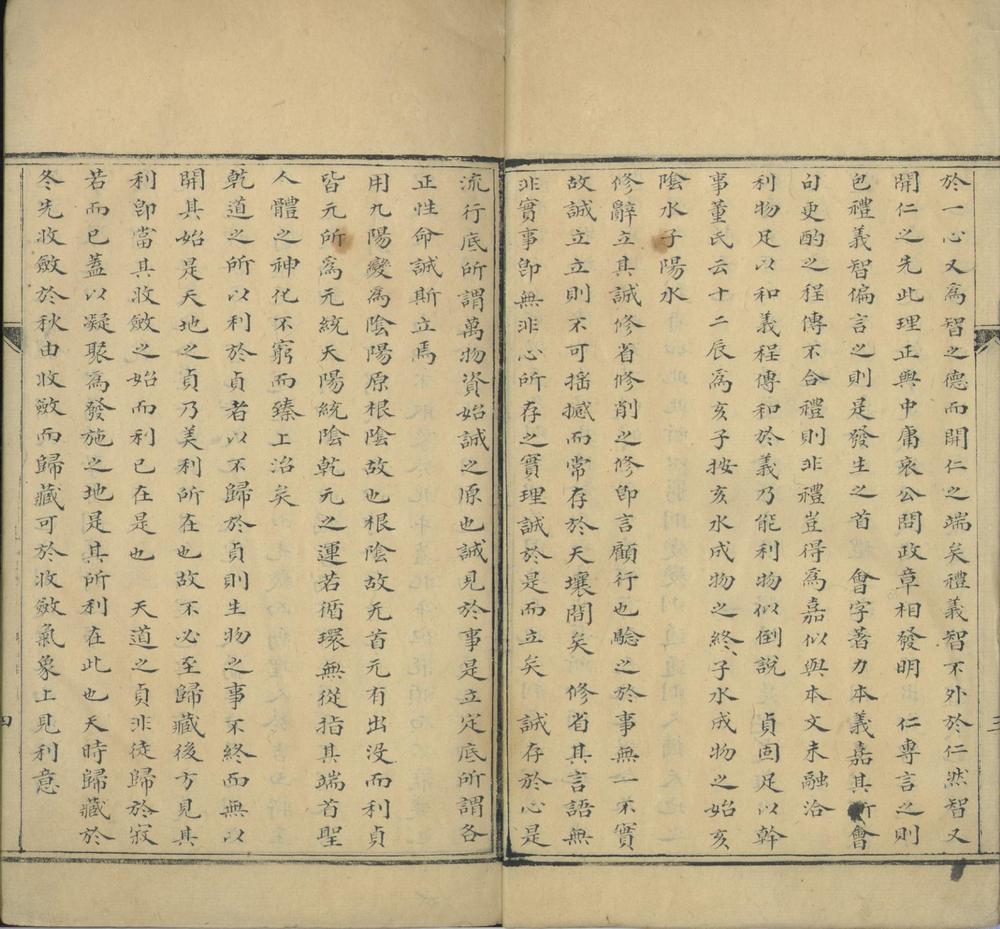 於一心又爲智之德而開仁之端矣禮義智不外於仁然智又
開仁之先此理正與中庸哀公問政章相發明　仁專言之則
包禮義智偏言之則是發生之首　會字著力本義嘉其所會
句更酌之程傳不合禮則非禮豈得爲嘉似與本文未融洽
利物足以和義程傳和於義乃能利物似倒說　貞固足以幹
事董氏云十二辰爲亥子按亥水成物之終子水成物之始亥
陰水子陽水
修辭立其誠修省修削之修即言顧行也驗之於事無一不實
故誠立立則不可搖撼而常存於天壤間矣　修省其言語無
非實事即無非心所存之實理誠於是而立矣　誠存於心是
流行底所謂萬物資始誠之原也誠見於事是立定底所謂各
正性命誠斯立焉
用九陽變爲陰陽原根陰故也根陰故无首元有出没而利貞
皆元所爲元統天陽統陰乾元之運若循環無從指其端首聖
人體之神化不窮而臻上治矣
乾道之所以利於貞者以不歸於貞則生物之事不終而無以
開其始是天地之貞乃美利所在也故不必至歸藏後方見其
利即當其收斂之始而利已在是也　天道之貞非徒歸於寂
若而已蓋以凝聚爲發施之地是其所利在此也天時歸藏於
冬先收斂於秋由收斂而歸藏可於收斂氣象上見利意
三
四